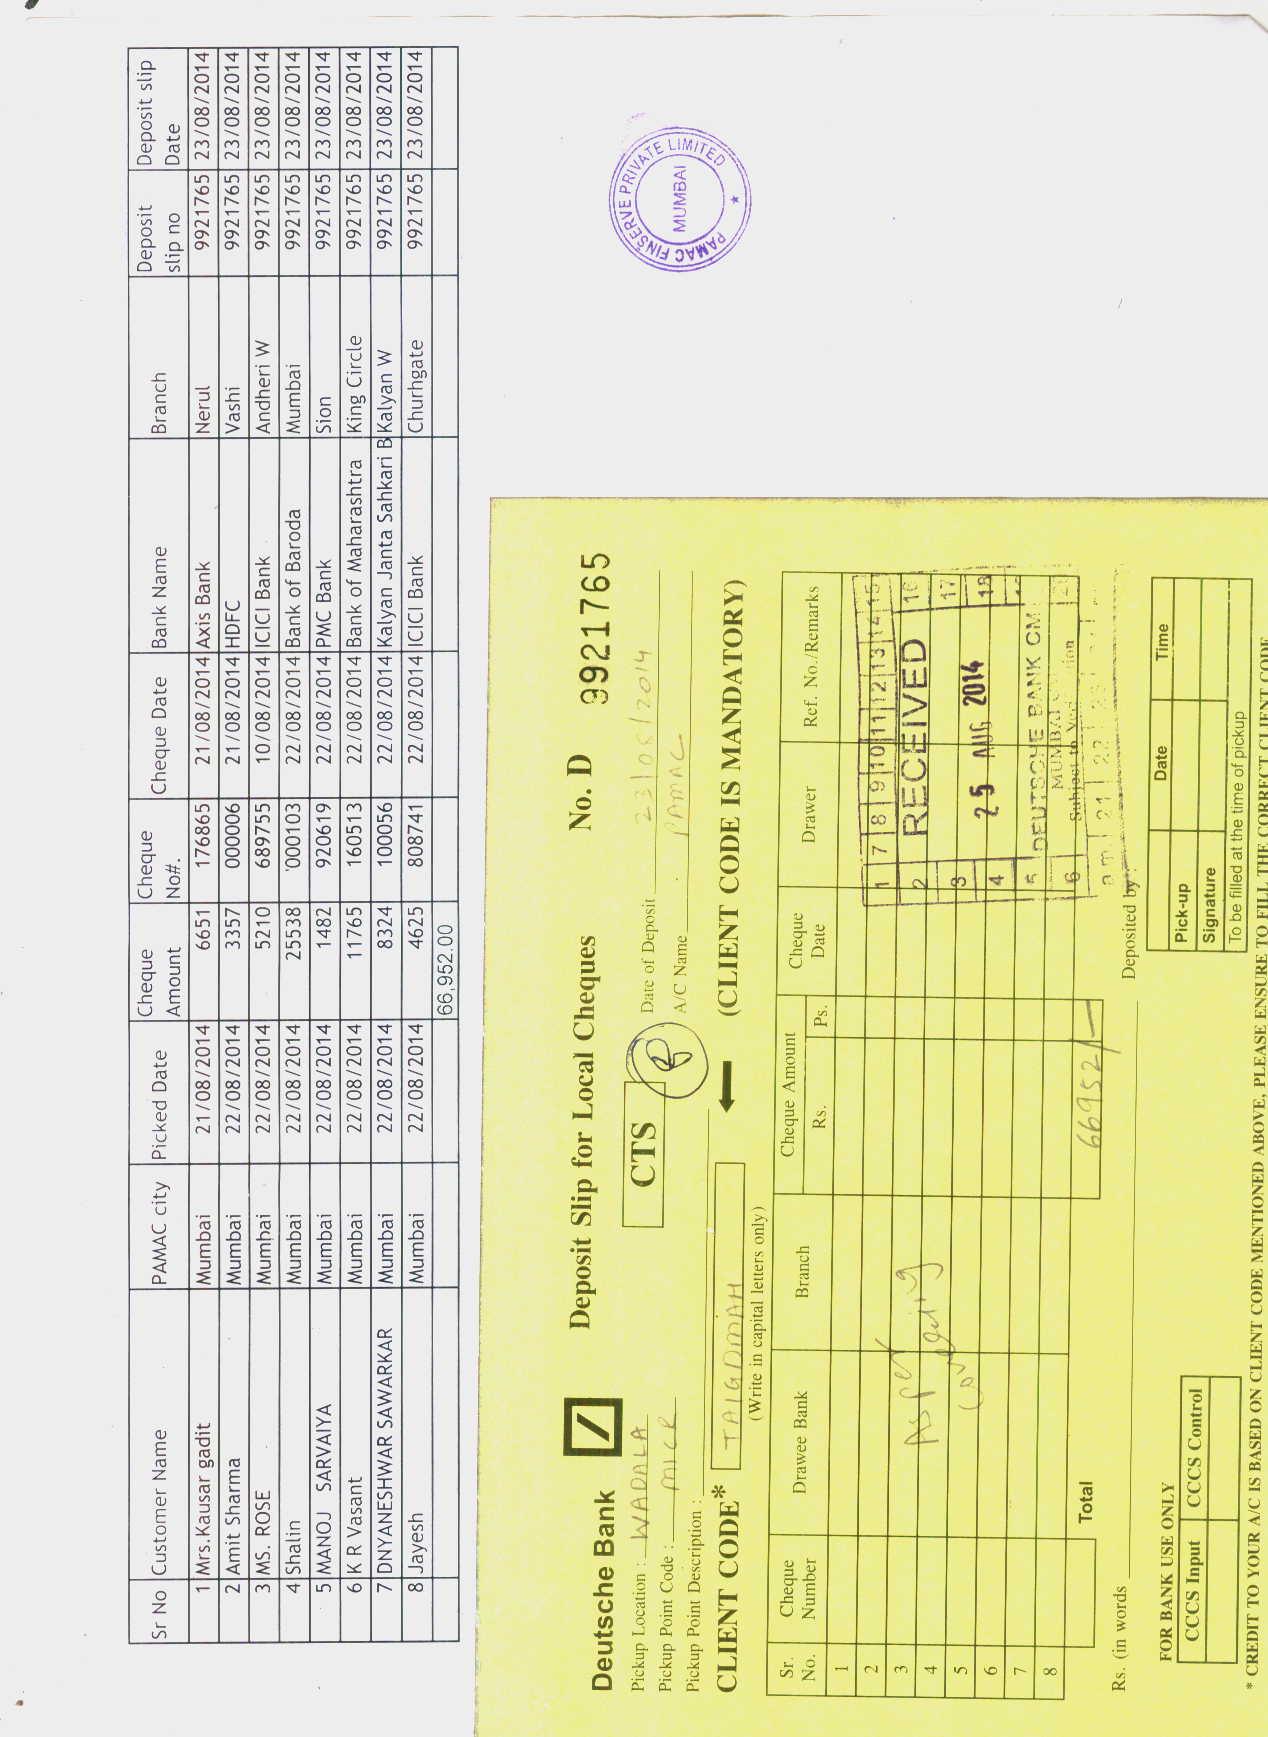 Sr No Customer Name PAMAC city Picked Date Cheque Amount Cheque No#. Cheque Date Bank Name Branch Deposit slip no Deposit slip Date
1 Mrs.Kausar gadit Mumbai 21/08/2014 6651 176865 21/08/2014 Axis Bank Nerul 9921765 23/08/2014
2 Amit Sharma Mumbai 22/08/2014 3357 000006 21/08/2014 HDFC Vashi 9921765 23/08/2014
3 MS. ROSE Mumbai 22/08/2014 5210 689755 10/08/2014 ICICI Bank Andheri W 9921765 23/08/2014
4 Shalin Mumbai 22/08/2014 25538 '000103 22/08/2014 Bank of Baroda Mumbai 9921765 23/08/2014
5 MANOJ SARVAIYA Mumbai 22/08/2014 1482 920619 22/08/2014 PMC Bank Sion 9921765 23/08/2014
6 K R Vasant Mumbai 22/08/2014 11765 160513 22/08/2014 Bank of Maharashtra King Circle 9921765 23/08/2014
7 DNYANESHWAR SAWARKAR Mumbai 22/08/2014 8324 100056 22/08/2014 Kalyan Janta Sahkari B Kalyan W 9921765 23/08/2014
8 Jayesh Mumbai 22/08/2014 4625 808741 22/08/2014 ICICI Bank Churhgate 9921765 23/08/2014
66,952.00
PAMAC FINSERVE PRIVATE LIMITED
MUMBAI
Deutsche Bank Deposit Slip for Local Cheques No. D 9921765
Pickup Location : WADALA CTS Date of Deposit
Pickup Point Code : MICR A/C Name PAMAC
Pickup Point Description :
CLIENT CODE* (CLIENT CODE IS MANDATORY)
(Write in capital letters only)
Sr. No. Cheque Number Drawee Bank Branch Cheque Amount Rs. Ps. Cheque Date Drawer Ref. No./Remarks
1
2
3 As per
4
5
6
7
8
Total 66952/-
7 8 9 10 11 12 13 14 15
1 16
2 RECEIVED 17
3 18
4 25 AUG 2014
5 DEUTSCHE BANK CM
6 MUMBAI
Subject to
Rs. (in words Deposited by :
FOR BANK USE ONLY
CCCS Input CCCS Control
Date Time
Pick-up
Signature
To be filled at the time of pickup
* CREDIT TO YOUR A/C IS BASED ON CLIENT CODE MENTIONED ABOVE, PLEASE ENSURE TO FILL THE CORRECT CLIENT CODE